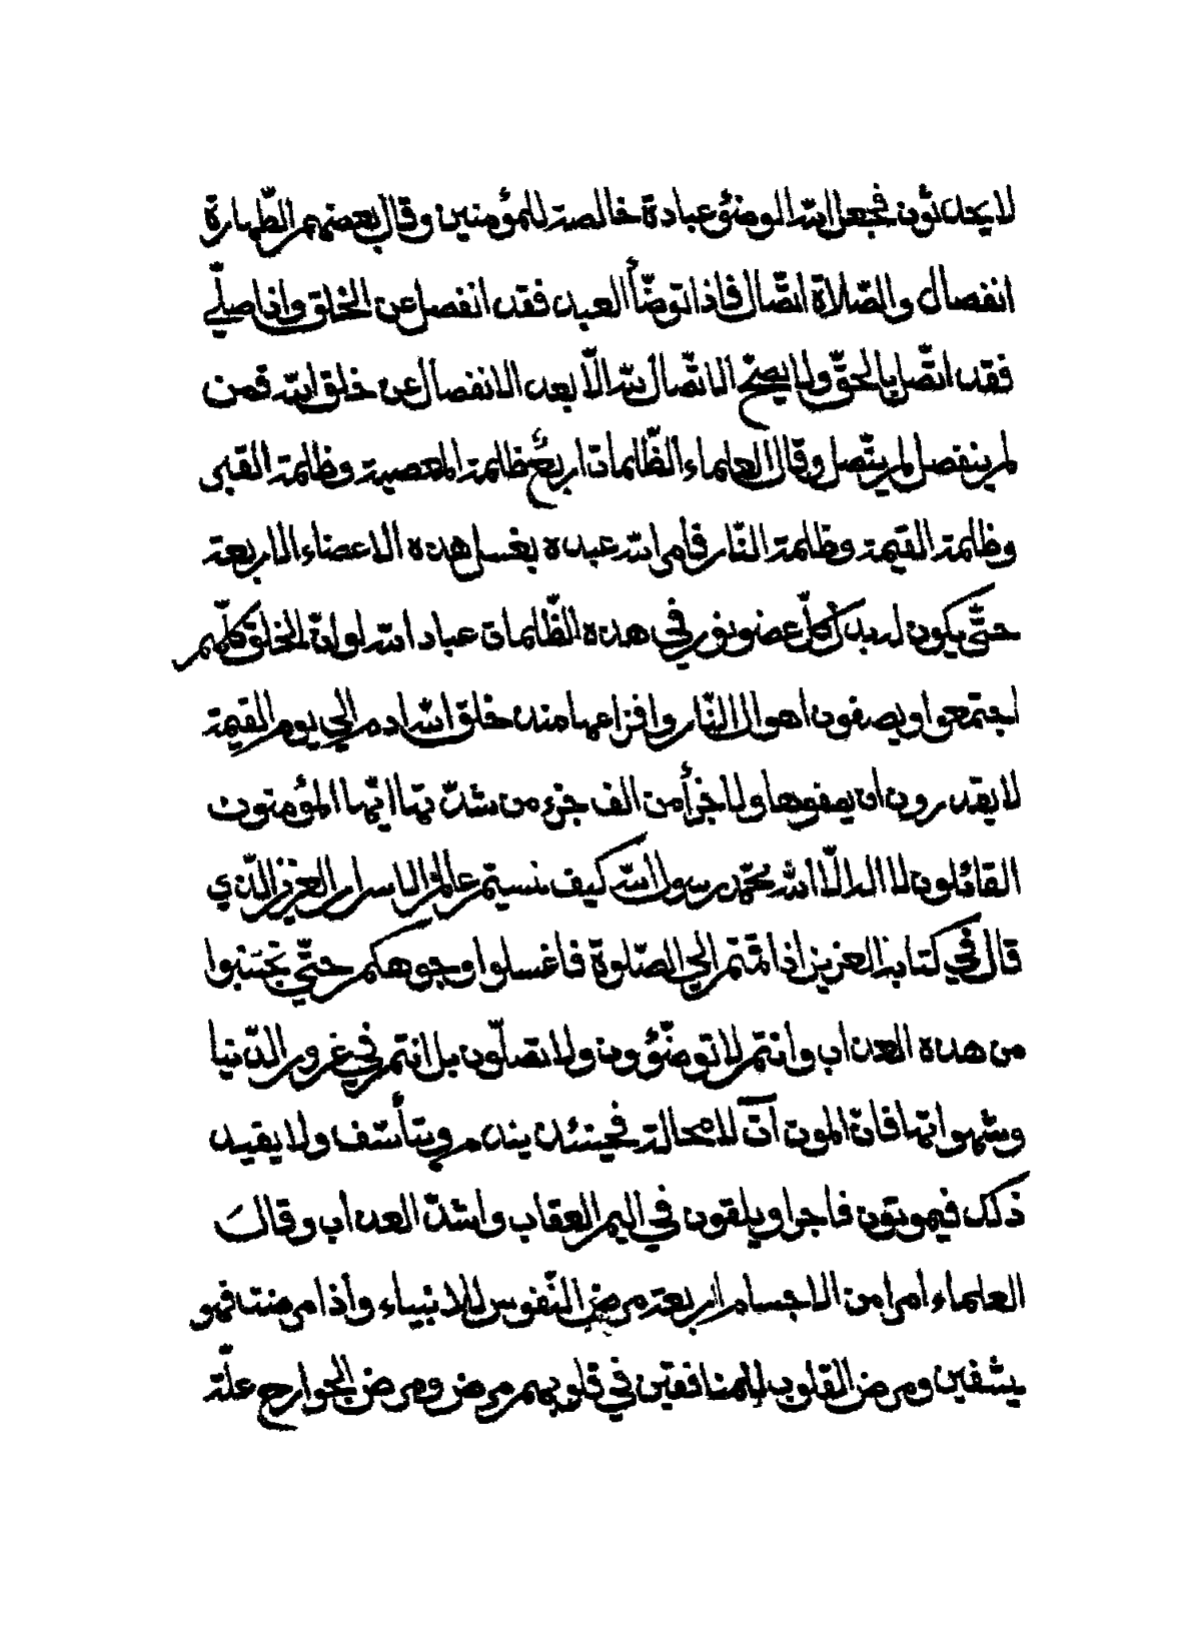 لا يحدثون فجعل الله الوضوء عبادة خالصة للمؤمنين وقال بعضهم الطّهارة
انفصال والصّلاة اتّصال فاذا توضّأ العبد فقد انفصل عن الخلق واذا صلّي
فقد اتّصل بالحقّ ولا يصحّ الاتّصال لله الّا بعد الانفصال عن خلق الله فمن
لم ينفصل لم يتّصل وقال العلماء الظّلمات اربعٌ ظلمة المعصية وظلمة القبر
وظلمة القيمة وظلمة النّار فأمر الله عبده بغسل هذه الاعضاء الاربعة
حتّي يكون له بدل كلّ عضو نور في هذه الظّلمات عباد الله لو انّ الخلق كلّهم
اجتمعوا ويصفون اهوال النّار وافزاعها منذ خلق الله ادم الي يوم القيمة
لا يقدرون ان يصفوها ولا جزأ من الف جزء من شدّتها ايّها المؤمنون
القائلون لا اله الّا الله محمّد رسول الله كيف نسيتم عالم الاسرار العزيز الّذي
قال في كتابه العزيز اذا قمتم الي الصّلوة فاغسلوا وجوهكم حتّي تجتنبوا
من هذه العذاب وانتم لا توضّؤون ولا تصلّون بل انتم في غرور الدّنيا
وشهواتها فانّ الموت آت لا محالة فحينئذ يندم ويتأسّف ولا يفيد
ذلك فيموتون فاجرا ويلقون في اليم العقاب واشدّ العذاب وقال
العلماء امرا من الاجسام اربعة مرض النّفوس للانبياء واذا مرضت فهو
يشفين ومرض القلوب للمنافقين في قلوبهم مرض ومرض الجوارح علّة